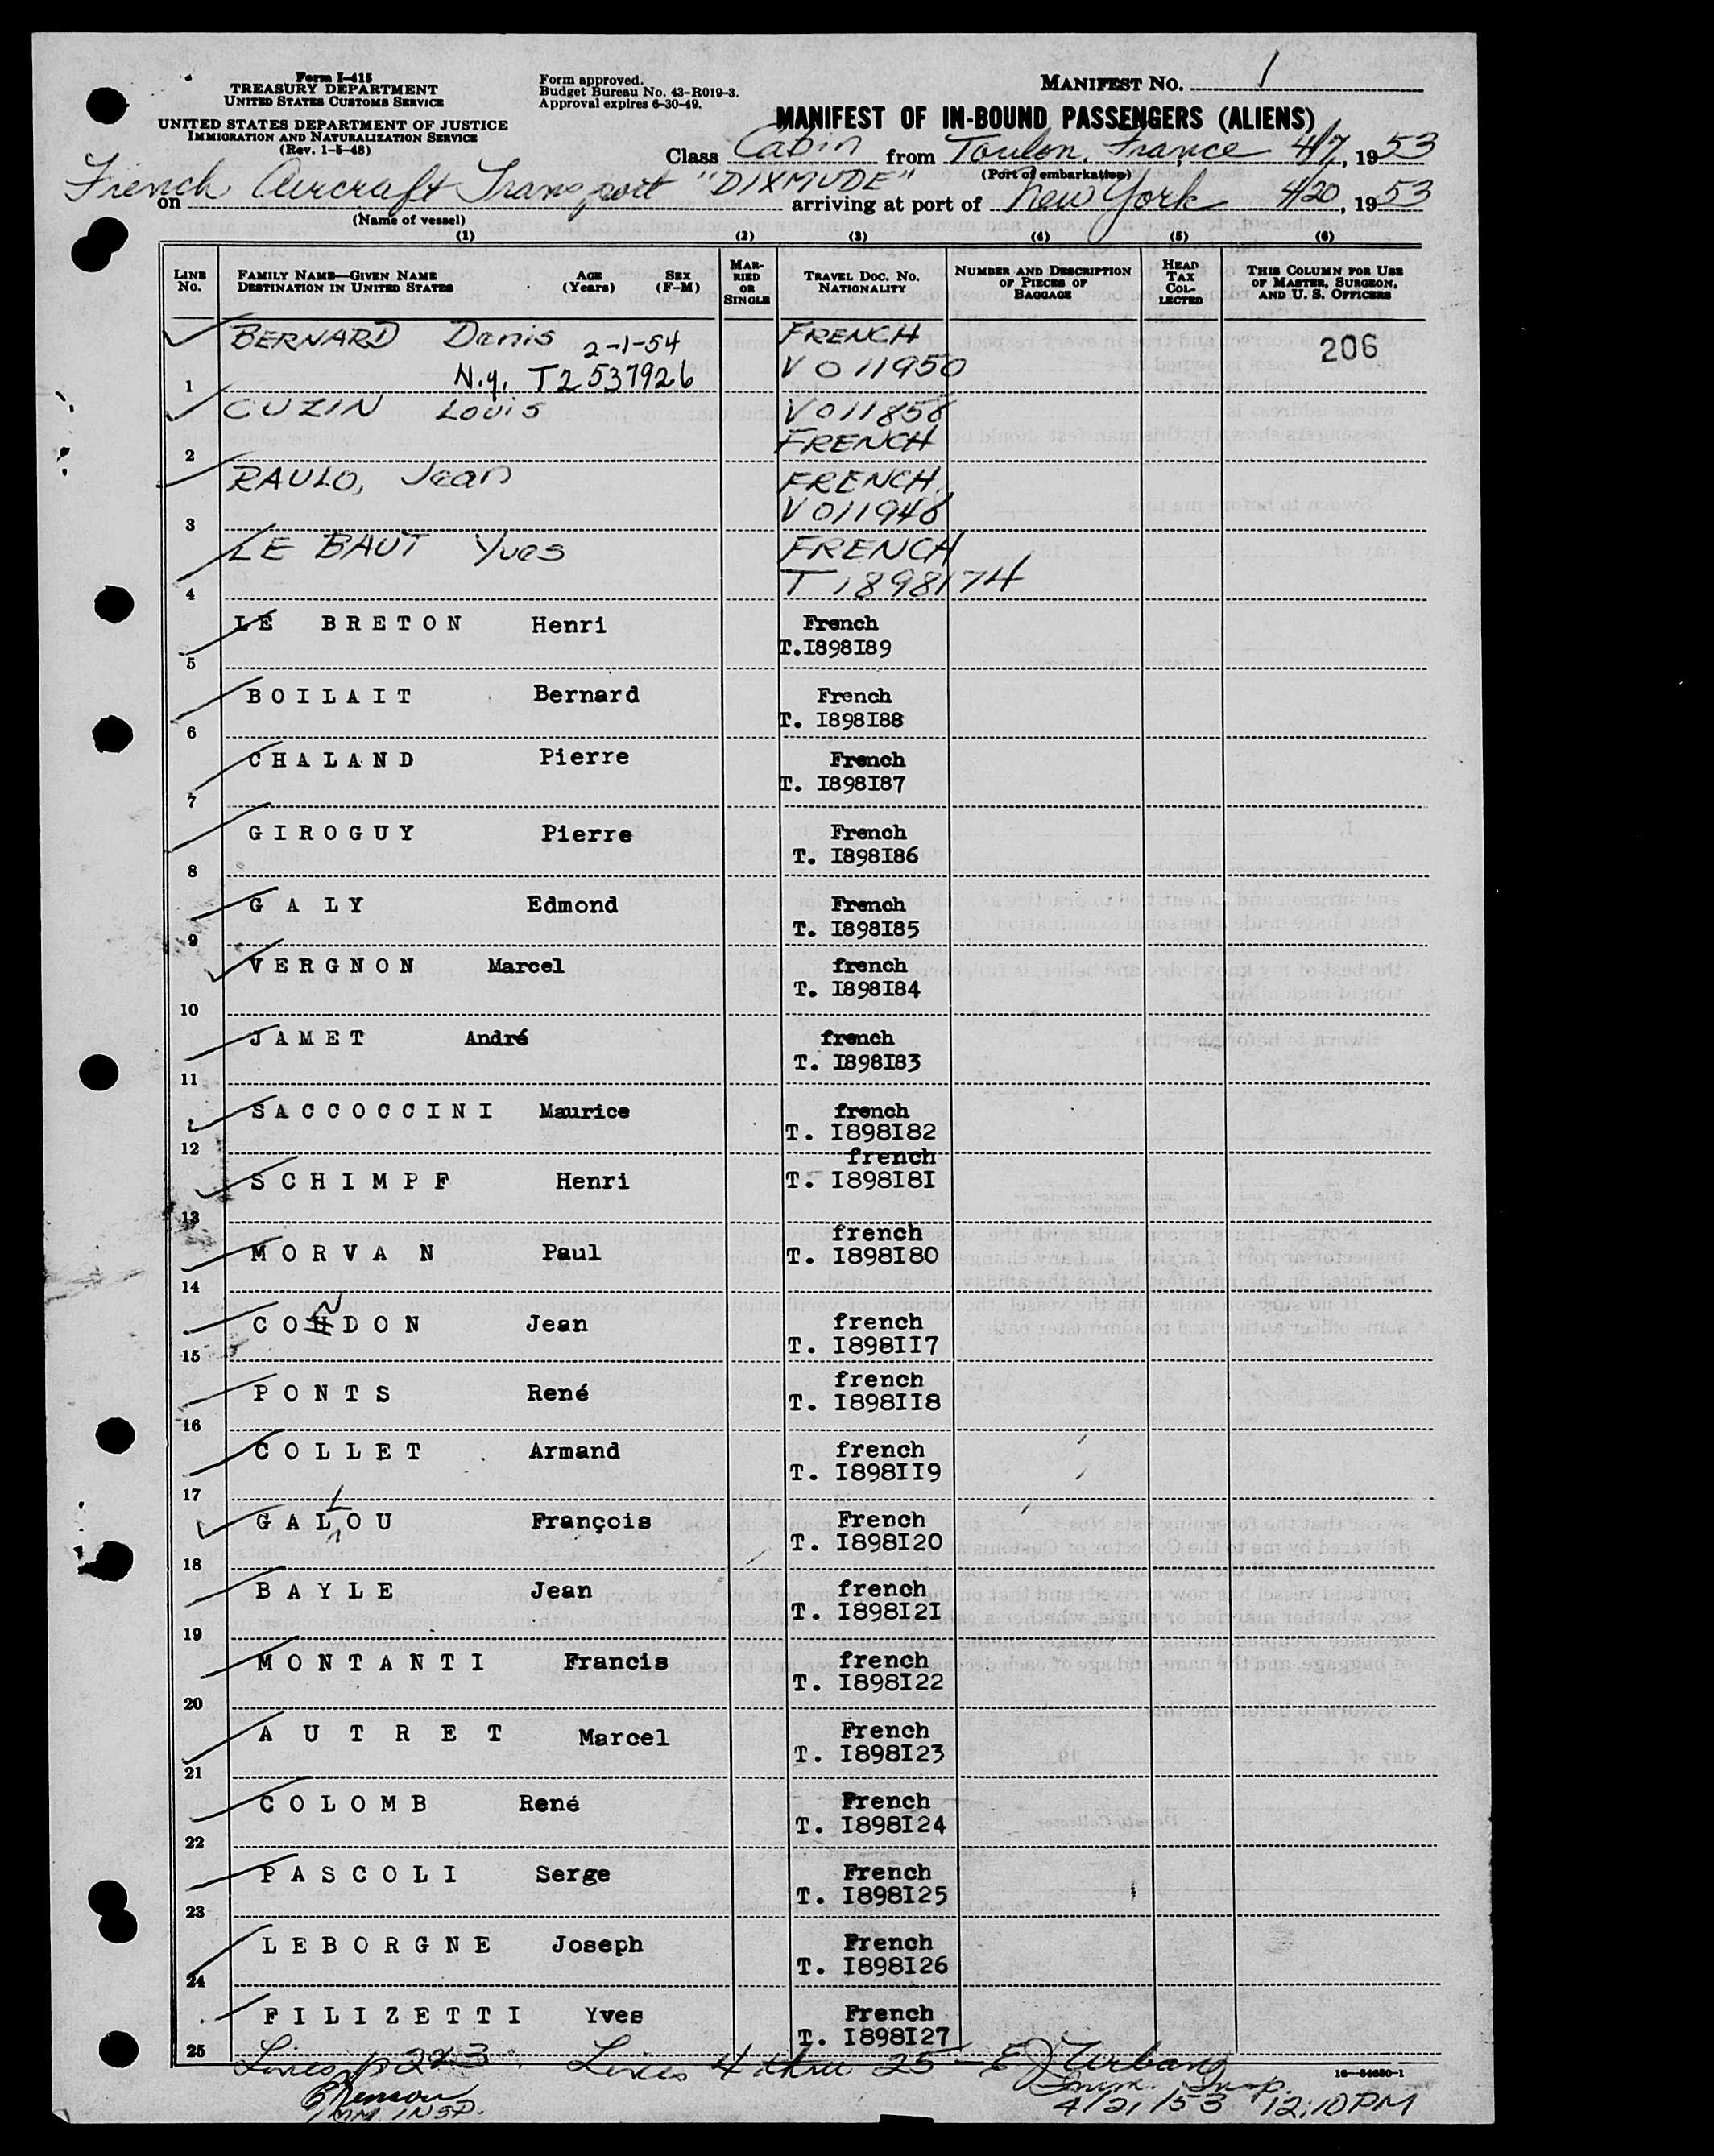 Form I-415
TREASURY DEPARTMENT
UNITED STATES CUSTOMS SERVICE
UNITED STATES DEPARTMENT OF JUSTICE
IMMIGRATION AND NATURALIZATION SERVICE
(Rev. 1-5-48)
Form approved.
Budget Bureau No. 43-R019-3.
Approval expires 6-30-49.
MANIFEST NO. 1
MANIFEST OF IN-BOUND PASSENGERS (ALIENS)
Class Cabin from Toulon, France 4/7, 1953
(Port of embarkation)
on French Aircraft Transport "DIXMUDE" arriving at port of New York 4/20, 1953
(Name of vessel)
(1) (2) (3) (4) (5) (6)
LINE No.
FAMILY NAME—GIVEN NAME DESTINATION IN UNITED STATES
AGE (Years)
SEX (F-M)
MARRIED OR SINGLE
TRAVEL DOC. NO. NATIONALITY
NUMBER AND DESCRIPTION OF PIECES OF BAGGAGE
HEAD TAX COLLECTED
THIS COLUMN FOR USE OF MASTER, SURGEON, AND U. S. OFFICERS
BERNARD Denis 2-1-54 FRENCH 206
1 N.y. T2537926 V011950
CUZIN Louis V011858
2 FRENCH
RAULO, Jean FRENCH
3 V011948
LE BAUT Yves FRENCH
4 T1898174
LE BRETON Henri French
5 T.I898I89
BOILAIT Bernard French
6 T. I898I88
CHALAND Pierre French
7 T. I898I87
GIROGUY Pierre French
8 T. I898I86
GALY Edmond French
9 T. I898I85
VERGNON Marcel french
10 T. I898I84
JAMET André french
11 T. I898I83
SACCOCCINI Maurice french
12 T. I898I82
french
SCHIMPF Henri T. I898I8I
13
french
MORVAN Paul T. I898I80
14
N
COUDON Jean french
15 T. I898II7
french
PONTS René T. I898II8
16
COLLET Armand french
17 T. I898II9
L
GALOU François French
18 T. I898I20
BAYLE Jean french
19 T. I898I2I
MONTANTI Francis french
20 T. I898I22
AUTRET Marcel French
21 T. I898I23
COLOMB René French
22 T. I898I24
PASCOLI Serge French
23 T. I898I25
LEBORGNE Joseph French
24 T. I898I26
FILIZETTI Yves French
25 T. I898I27
Lines 1, 2 & 3 Lines 4 thru 25 — E J Urbany
16—54650-1
IMM. INSP.
Imm. Insp.
4/21/53 12:10 PM